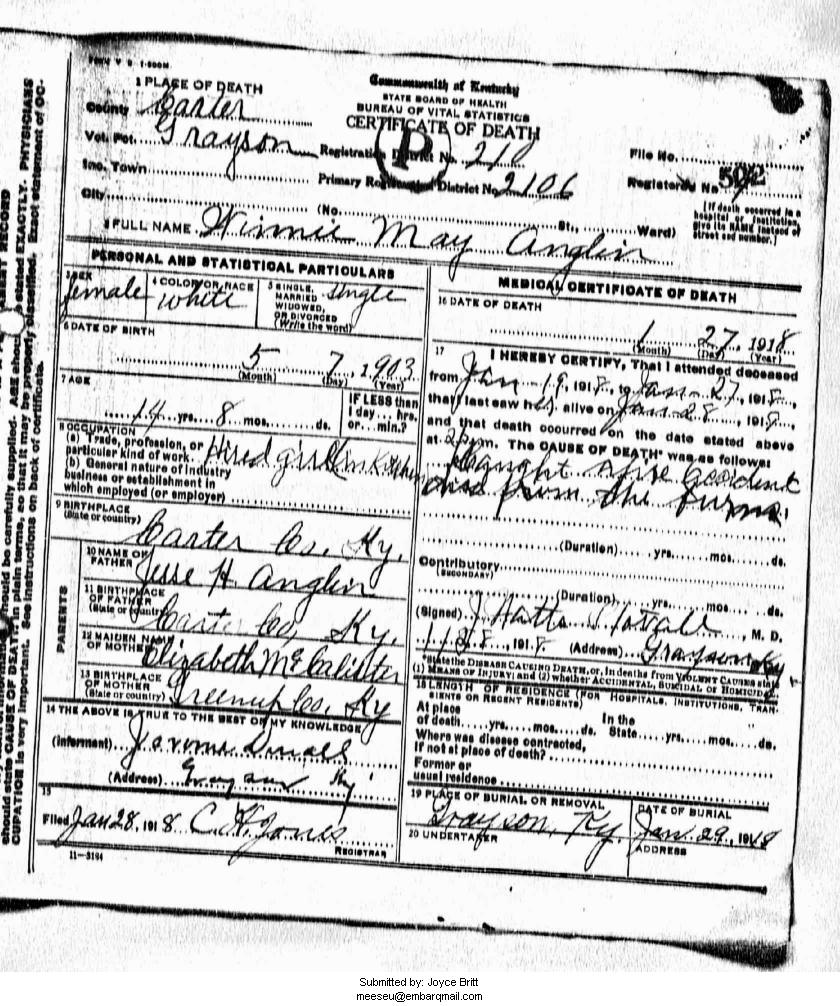 FORM V S 1-500M
1 PLACE OF DEATH
County Carter
Vot. Pct. Grayson
Inc. Town
City
Commonwealth of Kentucky
STATE BOARD OF HEALTH
BUREAU OF VITAL STATISTICS
CERTIFICATE OF DEATH
P
Registration District No. 210
Primary Registration District No. 2106
File No.
Registered No. 502
(No. St., Ward)
[If death occurred in a
hospital or institution,
give its NAME instead of
street and number.]
2 FULL NAME Winnie May Anglin
PERSONAL AND STATISTICAL PARTICULARS
3 SEX female
4 COLOR OR RACE white
5 SINGLE, MARRIED WIDOWED, OR DIVORCED (Write the word) single
6 DATE OF BIRTH
5 7, 1903
(Month) (Day) (Year)
7 AGE
14 yrs. 8 mos. ds.
IF LESS than
1 day... hrs.
or... min.?
8 OCCUPATION
(a) Trade, profession, or
particular kind of work Hired girl in Kitchen
(b) General nature of industry
business or establishment in
which employed (or employer)
9 BIRTHPLACE
(State or country) Carter Co. Ky.
PARENTS
10 NAME OF FATHER Jesse H Anglin
11 BIRTHPLACE OF FATHER (State or country) Carter Co, Ky.
12 MAIDEN NAME OF MOTHER Elizabeth McCalister
13 BIRTHPLACE OF MOTHER (State or country) Greenup Co, Ky
14 THE ABOVE IS TRUE TO THE BEST OF MY KNOWLEDGE
(Informant) Small
(Address) Grayson Ky
15
Filed Jan 28, 1918 C. H. Jones
REGISTRAR
11-3184
MEDICAL CERTIFICATE OF DEATH
16 DATE OF DEATH
1 27, 1918
(Month) (Day) (Year)
17 I HEREBY CERTIFY, That I attended deceased
from Jan 19, 1918, to Jan - 27, 1918,
that I last saw her alive on Jan - 28, 1918,
and that death occurred on the date stated above
at 2 p.m. The CAUSE OF DEATH was as follows:
Caught afire accident
died from the burns
(Duration) yrs. mos. ds.
Contributory
(SECONDARY)
(Duration) yrs. mos. ds.
(Signed) J Watts Stovall, M. D.
1/28, 1918. (Address) Grayson Ky
State the DISEASE CAUSING DEATH, or, in deaths from VIOLENT CAUSES state
(1) MEANS OF INJURY; and (2) whether ACCIDENTAL, SUICIDAL or HOMICIDAL
18 LENGTH OF RESIDENCE (FOR HOSPITALS, INSTITUTIONS, TRAN-
SIENTS OR RECENT RESIDENTS)
At place of death yrs. mos. ds. In the State yrs. mos. ds.
Where was disease contracted,
if not at place of death?
Former or
usual residence
19 PLACE OF BURIAL OR REMOVAL
Grayson, Ky.
DATE OF BURIAL
Jan. 29, 1918
20 UNDERTAKER
ADDRESS
should be carefully supplied. AGE should be stated EXACTLY. PHYSICIANS
should state CAUSE OF DEATH in plain terms, so that it may be properly classified. Exact statement of OC-
CUPATION is very important. See instructions on back of certificate.
Submitted by: Joyce Britt
meeseu@embarqmail.com